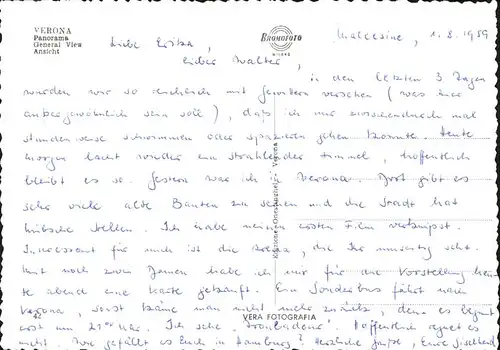 VERONA
Panorama
General View
Ansicht
BROMOFOTO
MILANO
Malcesine, 1.8.1959
Liebe Erika,
lieber Walter,
in den letzten 3 Tagen
wurden wir so reichlich mit Gewittern versehen (was hier
außergewöhnlich sein soll), daß ich nur
stundenweise schwimmen oder spazieren gehen konnte. Heute
morgen lacht wieder ein strahlender Himmel, hoffentlich
bleibt es so. Gestern war ich in Verona. Dort gibt es
sehr viele alte Bauten zu sehen und die Stadt hat
hübsche Stellen. Ich habe meinen ersten Film verknipst.
Interessant für mich ist die Arena, die Ihr umseitig seht.
Mit noch zwei Damen habe ich mir für die Vorstellung heu-
te abend eine Karte gekauft. Ein Sonderbus fährt nach
Verona, sonst käme man nicht mehr zurück, denn es beginnt
erst um 21 Uhr. Ich sehe "Troubadour". Hoffentlich regnet es
nicht. Wie gefällt es Euch in Hamburg? Herzliche Grüße, Eure
VERA FOTOGRAFIA
42
Verona